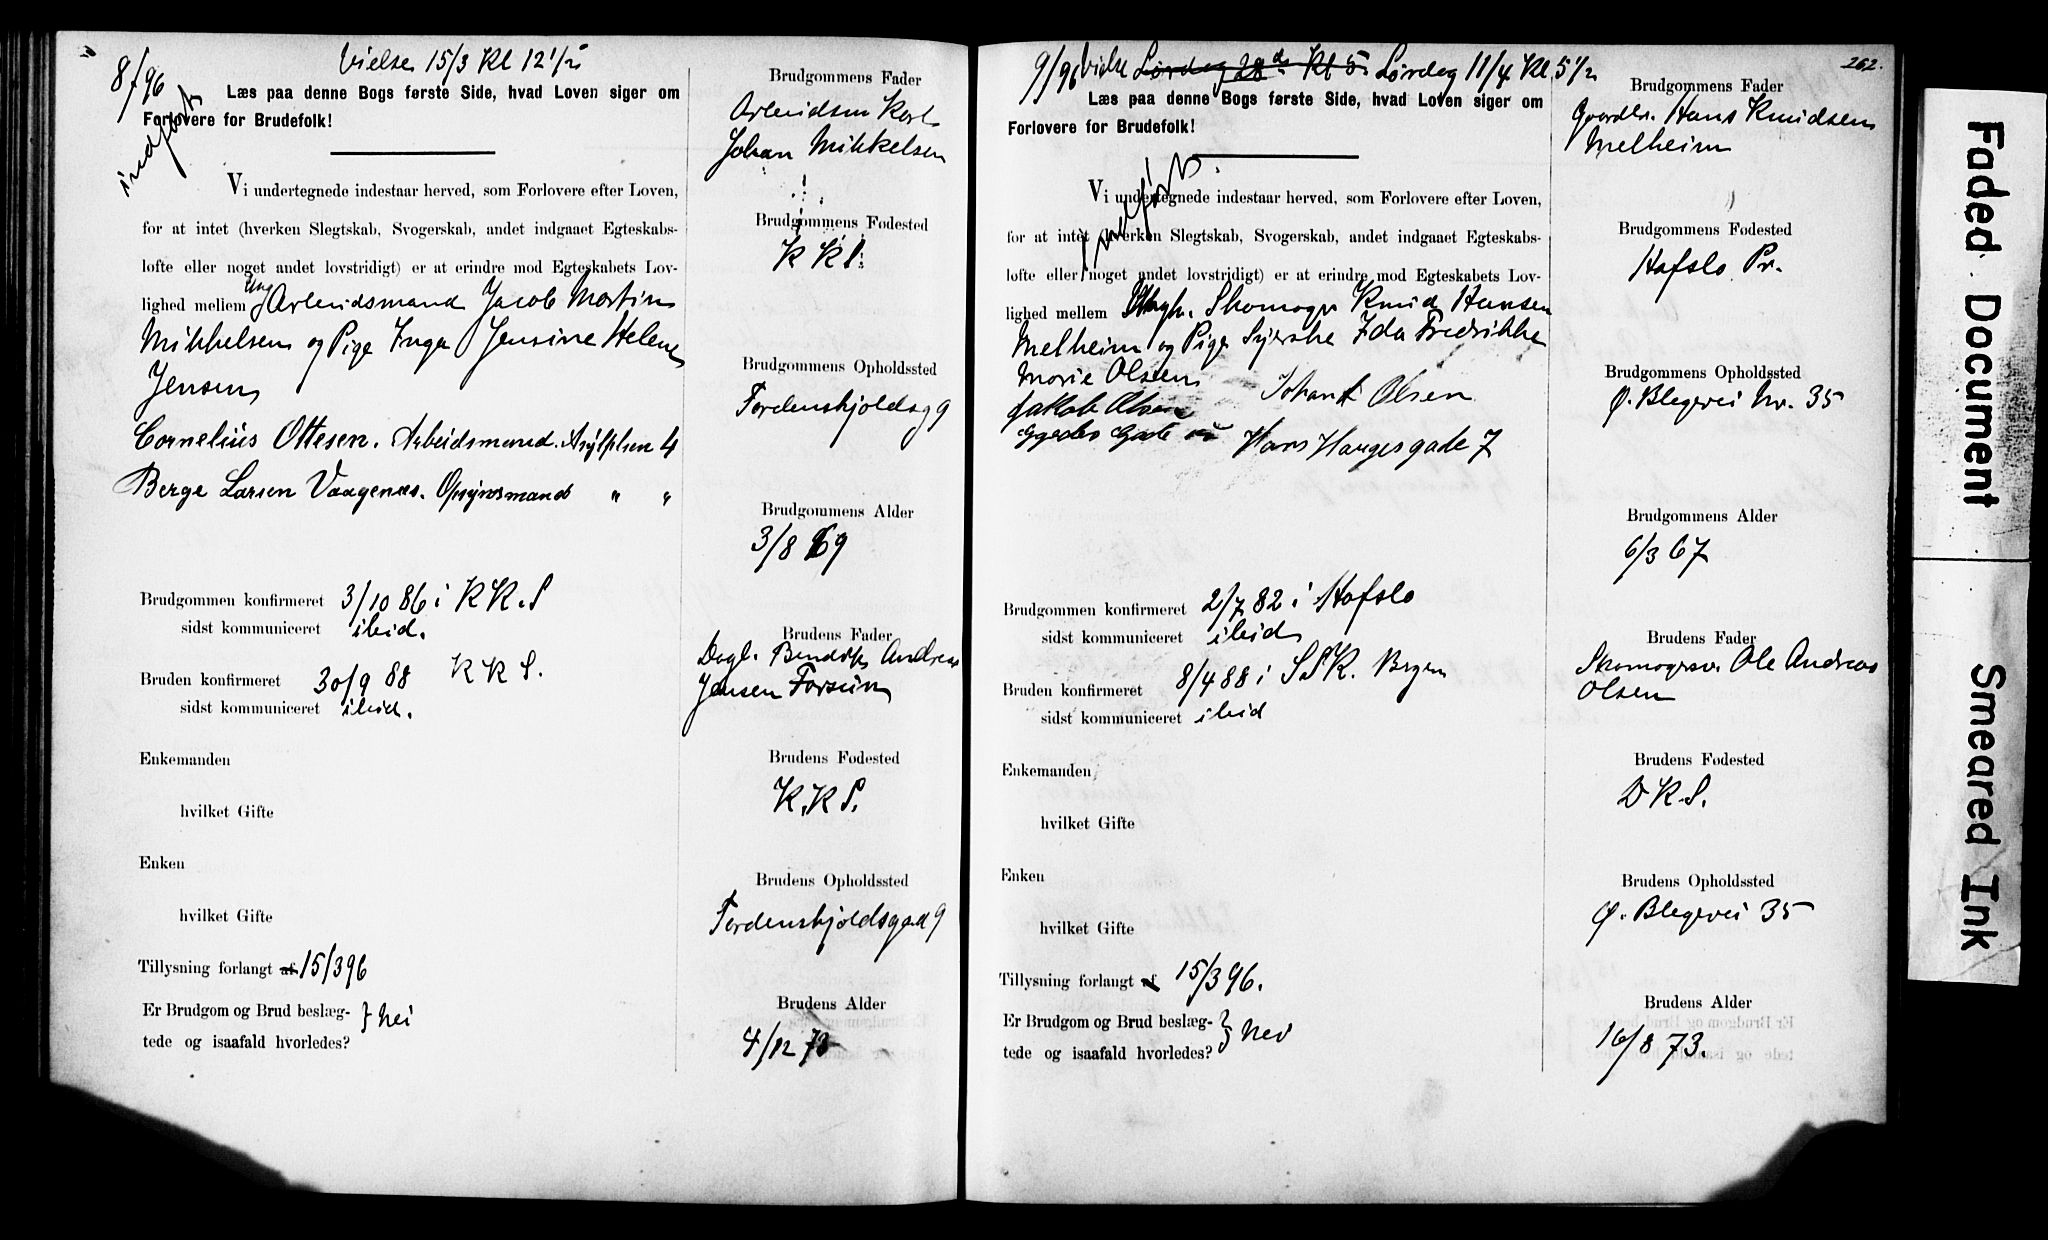 8/96
Vielse 15/3 Kl 12 1/2
indført
Læs paa denne Bogs første Side, hvad Loven siger om
Forlovere for Brudefolk!
Vi undertegnede indestaar herved, som Forlovere efter Loven,
for at intet (hverken Slegtskab, Svogerskab, andet indgaaet Egteskabs-
løfte eller noget andet lovstridigt) er at erindre mod Egteskabets Lov-
lighed mellem Ung Arbeidsmand Jacob Martin
Mikkelsen og Pige Inga Jensine Helene
Jensen
Cornelius Ottesen. Arbeidsmand. Asylplsen 4
Berge Larsen Vaagenæs. Opsynsmand " "
Brudgommen konfirmeret 3/10 86 i KK.S
sidst kommuniceret ibid.
Bruden konfirmeret 30/9 88 KKS.
sidst kommuniceret ibid.
Enkemanden
hvilket Gifte
Enken
hvilket Gifte
Tillysning forlangt af 15/3 96
Er Brudgom og Brud beslæg-
tede og isaafald hvorledes? } Nei
Brudgommens Fader
Arbeidsm Karl
Johan Mikkelsen
Brudgommens Fødested
KKS.
Brudgommens Opholdssted
Tordenskjoldsg 9
Brudgommens Alder
3/8 69
Brudens Fader
Dagl. Bendix Andreas
Jensen Forsun
Brudens Fødested
K.K S.
Brudens Opholdssted
Tordenskjoldsgad 9
Brudens Alder
4/12 73
9/96 Vielse Lørdag 28de Kl 5. Lørdag 11/4 Kl. 5 1/2
262.
indført
Læs paa denne Bogs første Side, hvad Loven siger om
Forlovere for Brudefolk!
Vi undertegnede indestaar herved, som Forlovere efter Loven,
for at intet (hverken Slegtskab, Svogerskab, andet indgaaet Egteskabs-
løfte eller noget andet lovstridigt) er at erindre mod Egteskabets Lov-
lighed mellem Ungk. Skomager Knud Hansen
Melheim og Pige Syerske Ida Fredrikke
Marie Olsen
Jakob Olsen
Egedes Gade
Johan Olsen
Hans Haugesgade 7
Brudgommen konfirmeret 2/7 82 i Hafslo
sidst kommuniceret ibid
Bruden konfirmeret 8/4 88 i SSK. Bergen
sidst kommuniceret ibid
Enkemanden
hvilket Gifte
Enken
hvilket Gifte
Tillysning forlangt af 15/3 96.
Er Brudgom og Brud beslæg-
tede og isaafald hvorledes? } Nei
Brudgommens Fader
Gaardbr. Hans Knudsen
Melheim
Brudgommens Fødested
Hafslo Pr.
Brudgommens Opholdssted
Ø. Blegevei Nr. 35
Brudgommens Alder
6/3 67
Brudens Fader
Skomagersv. Ole Andreas
Olsen
Brudens Fødested
DK.S.
Brudens Opholdssted
Ø. Blegevei 35
Brudens Alder
16/8 73.
Faded Document
Smeared Ink